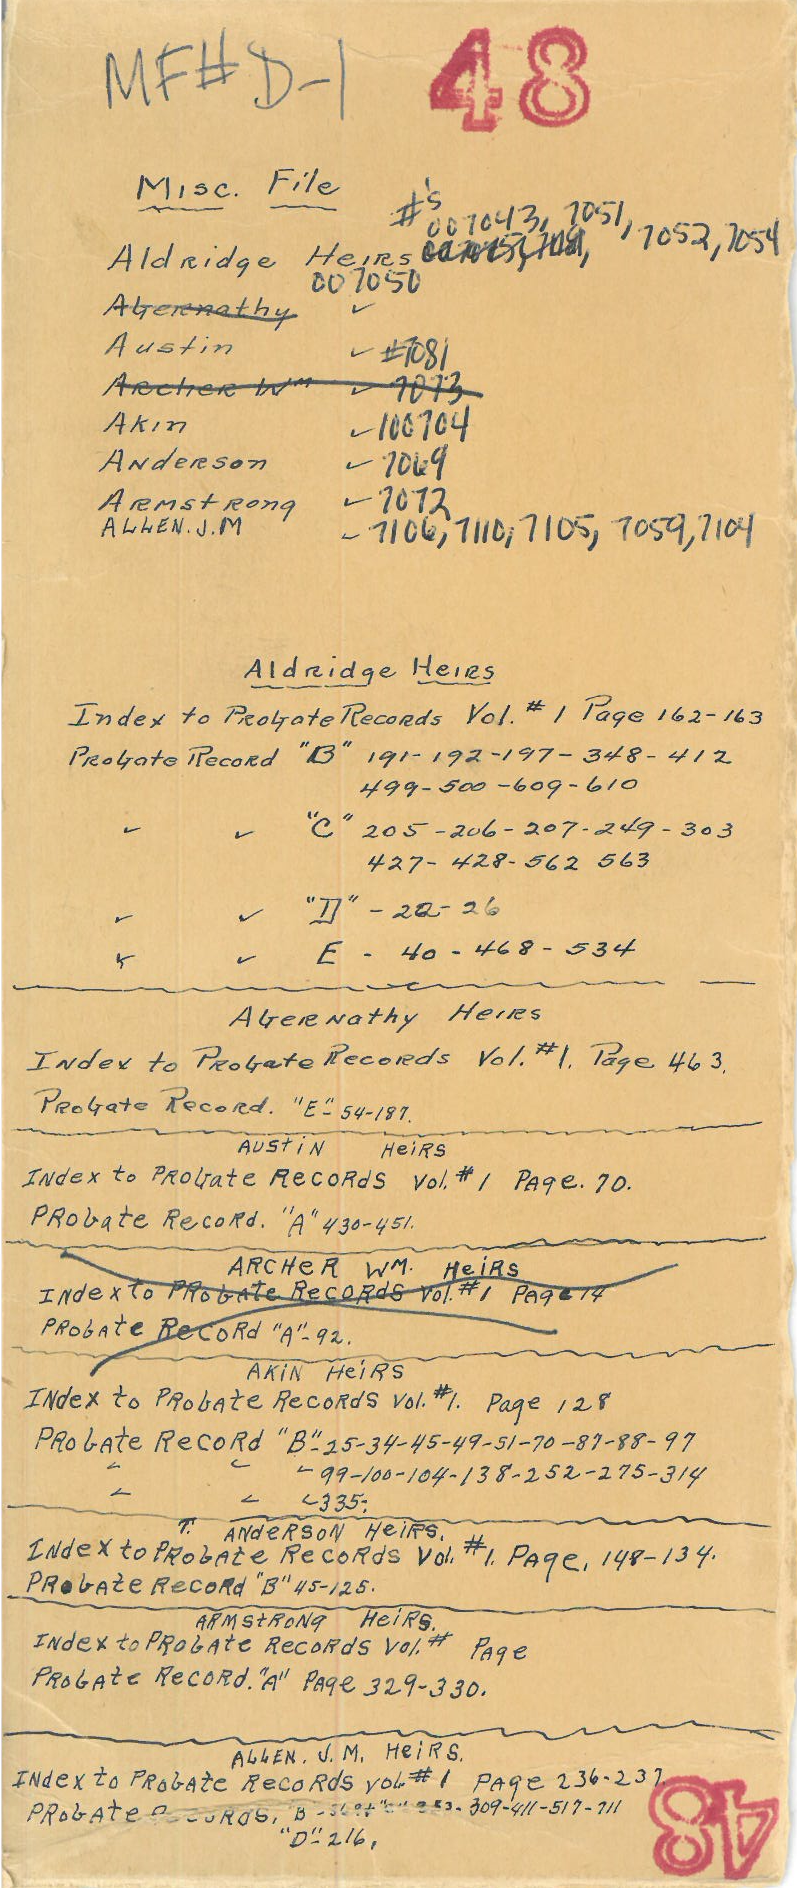 MF# D-1 48
Misc. File
#'s
007043, 7051, 7052, 7054
Aldridge Heirs
007050
Abernathy ✓
Austin ✓ #7081
Archer Wm ✓ 7073
Akin ✓ 100704
Anderson ✓ 7069
Armstrong ✓ 7072
ALLEN. J. M ✓ 7106, 7110, 7105, 7059, 7104
Aldridge Heirs
Index to Probate Records Vol. #1 Page 162-163
Probate Record "B" 191-192-197-348-412
499-500-609-610
✓ ✓ "C" 205-206-207-249-303
427-428-562 563
✓ ✓ "D" - 22-26
✓ ✓ E - 40-468-534
Abernathy Heirs
Index to Probate Records Vol. #1. Page 463.
Probate Record. "E"- 54-187.
Austin Heirs
Index to Probate Records Vol. #1 Page. 70.
Probate Record. "A" 430-451.
Archer Wm. Heirs
Index to Probate Records Vol. #1 Page 14
Probate Record "A"-92.
Akin Heirs
Index to Probate Records Vol. #1. Page 128
Probate Record "B"-25-34-45-49-51-70-87-88-97
✓ ✓ ✓ 99-100-104-138-252-275-314
✓ ✓ ✓ 335.
T. Anderson Heirs.
Index to Probate Records Vol. #1. Page, 148-134.
Probate Record "B" 45-125.
Armstrong Heirs.
Index to Probate Records Vol. # Page
Probate Record. "A" Page 329-330.
Allen. J. M. Heirs.
Index to Probate Records Vol. #1 Page 236-237.
Probate Records, "B" 309-411-517-711
"D"-216,
48